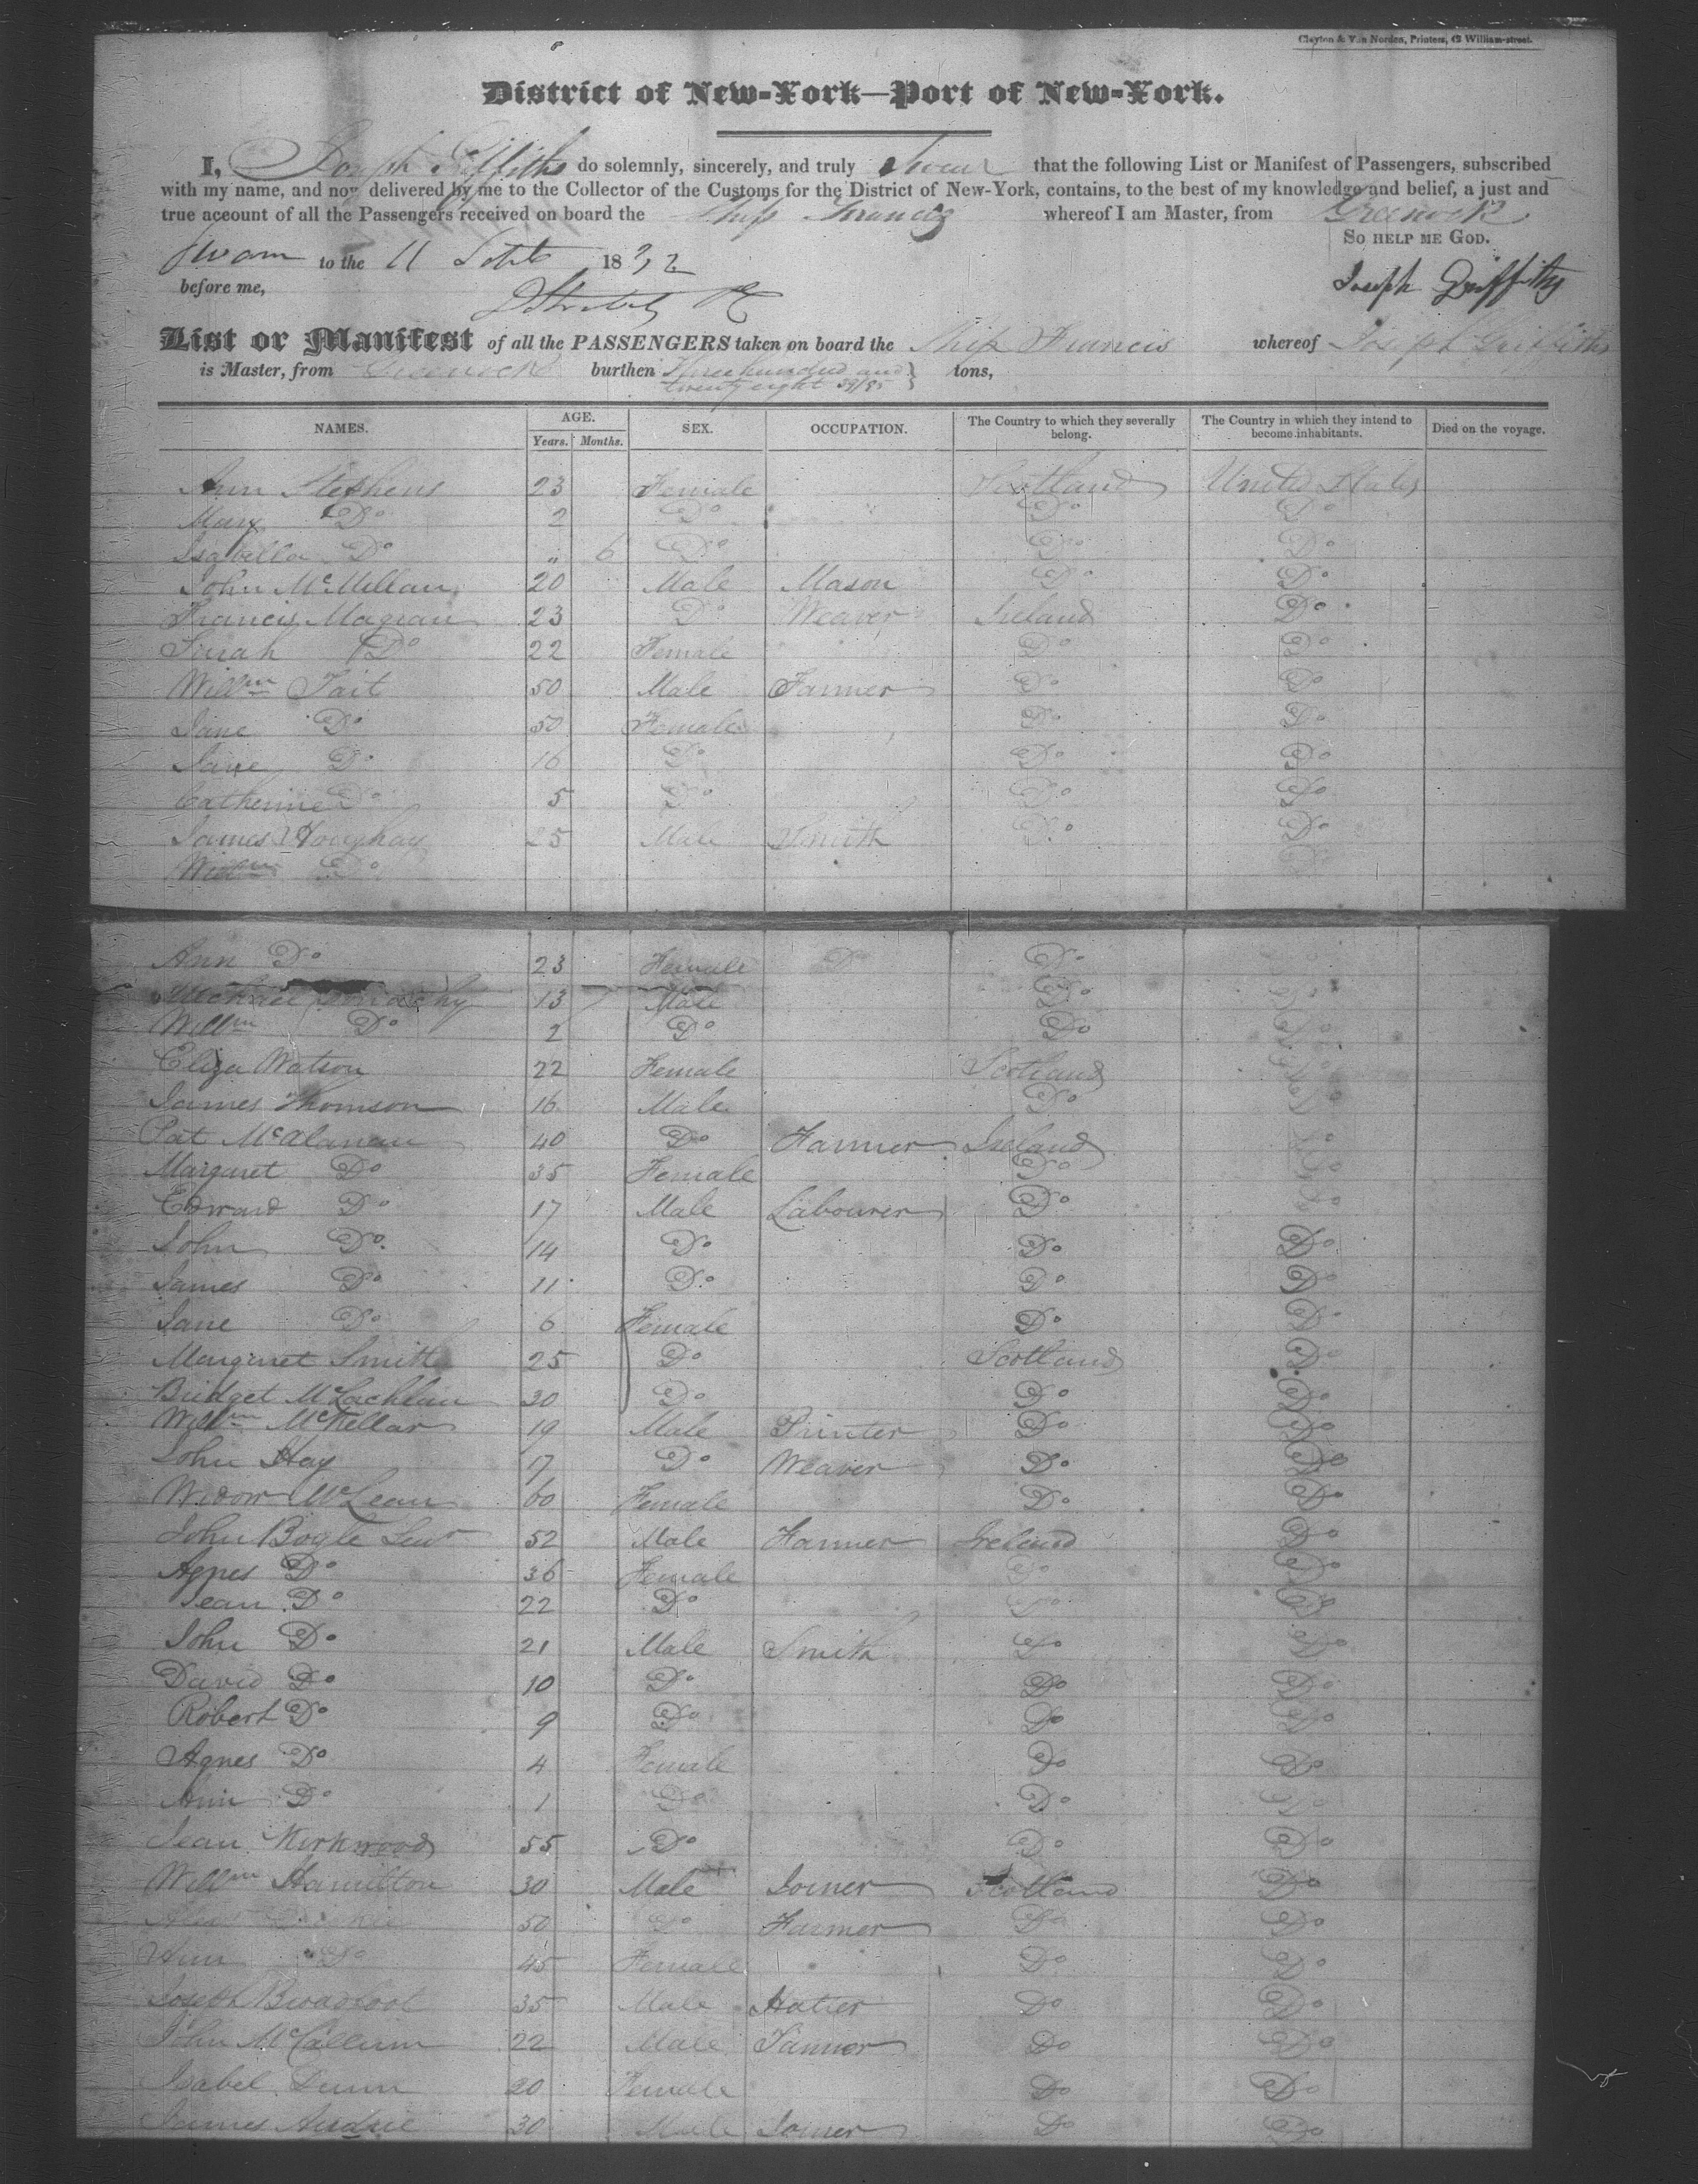 Clayton & Van Norden, Printers, 42 William-street.
District of New-York—Port of New-York.
I, Joseph Griffiths do solemnly, sincerely, and truly Swear that the following List or Manifest of Passengers, subscribed
with my name, and now delivered by me to the Collector of the Customs for the District of New-York, contains, to the best of my knowledge and belief, a just and
true account of all the Passengers received on board the Ship Francis whereof I am Master, from Greenock
So help me God.
Sworn to the 11 1832
before me,
Joseph Griffiths
List or Manifest of all the PASSENGERS taken on board the Ship Francis whereof Joseph Griffiths
is Master, from Greenock burthen Three hundred and
twenty eight 39/95 tons,
NAMES. AGE. SEX. OCCUPATION. The Country to which they severally belong. The Country in which they intend to become inhabitants. Died on the voyage.
Years. Months.
Ann Stephens 23 Female Scotland United States
Mary Do 2 Do Do Do
Isabella Do " 6 Do Do Do
John McMillan 20 Male Mason Do Do
Francis Magran 23 Do Weaver Ireland Do
Sarah Do 22 Female Do Do
Willm Tait 50 Male Farmer Do Do
Jane Do 50 Female Do Do
Jane Do 16 Do Do Do
Catherine Do 5 Do Do Do
James 25 Male Smith Do Do
Willm Do Do
Ann Do 23 Female D Do Do
Michael 13 Male Do Do
Willm Do 2 Do Do Do
Eliza Watson 22 Female Scotland Do
James Thomson 16 Male Do Do
Pat McAlanan 40 Do Farmer Ireland Do
Margaret Do 35 Female Do Do
Edward Do 17 Male Labourer Do Do
John Do 14 Do Do Do
James Do 11 Do Do Do
Jane Do 6 Female Do Do
Margaret Smith 25 Do Scotland Do
Bridget McLachlan 30 Do Do Do
Willm McKellar 19 Male Printer Do Do
John Hay 17 Do Weaver Do Do
Widow McLean 60 Female Do Do
John Bogle Senr 52 Male Farmer Ireland Do
Agnes Do 36 Female Do Do
Jean Do 22 Do Do Do
John Do 21 Male Smith Do Do
David Do 10 Do Do Do
Robert Do 9 Do Do Do
Agnes Do 4 Female Do Do
Ann Do 1 Do Do Do
Jean Kirkwood 55 Do Do Do
Willm Hamilton 30 Male Joiner Scotland Do
50 Do Farmer Do Do
Ann Do 45 Female Do Do
Joseph Broadfoot 35 Male Hatter Do Do
John McCallum 22 Male Tanner Do Do
Isabel Dunn 20 Female Do Do
James Airdrie 30 Male Joiner Do Do